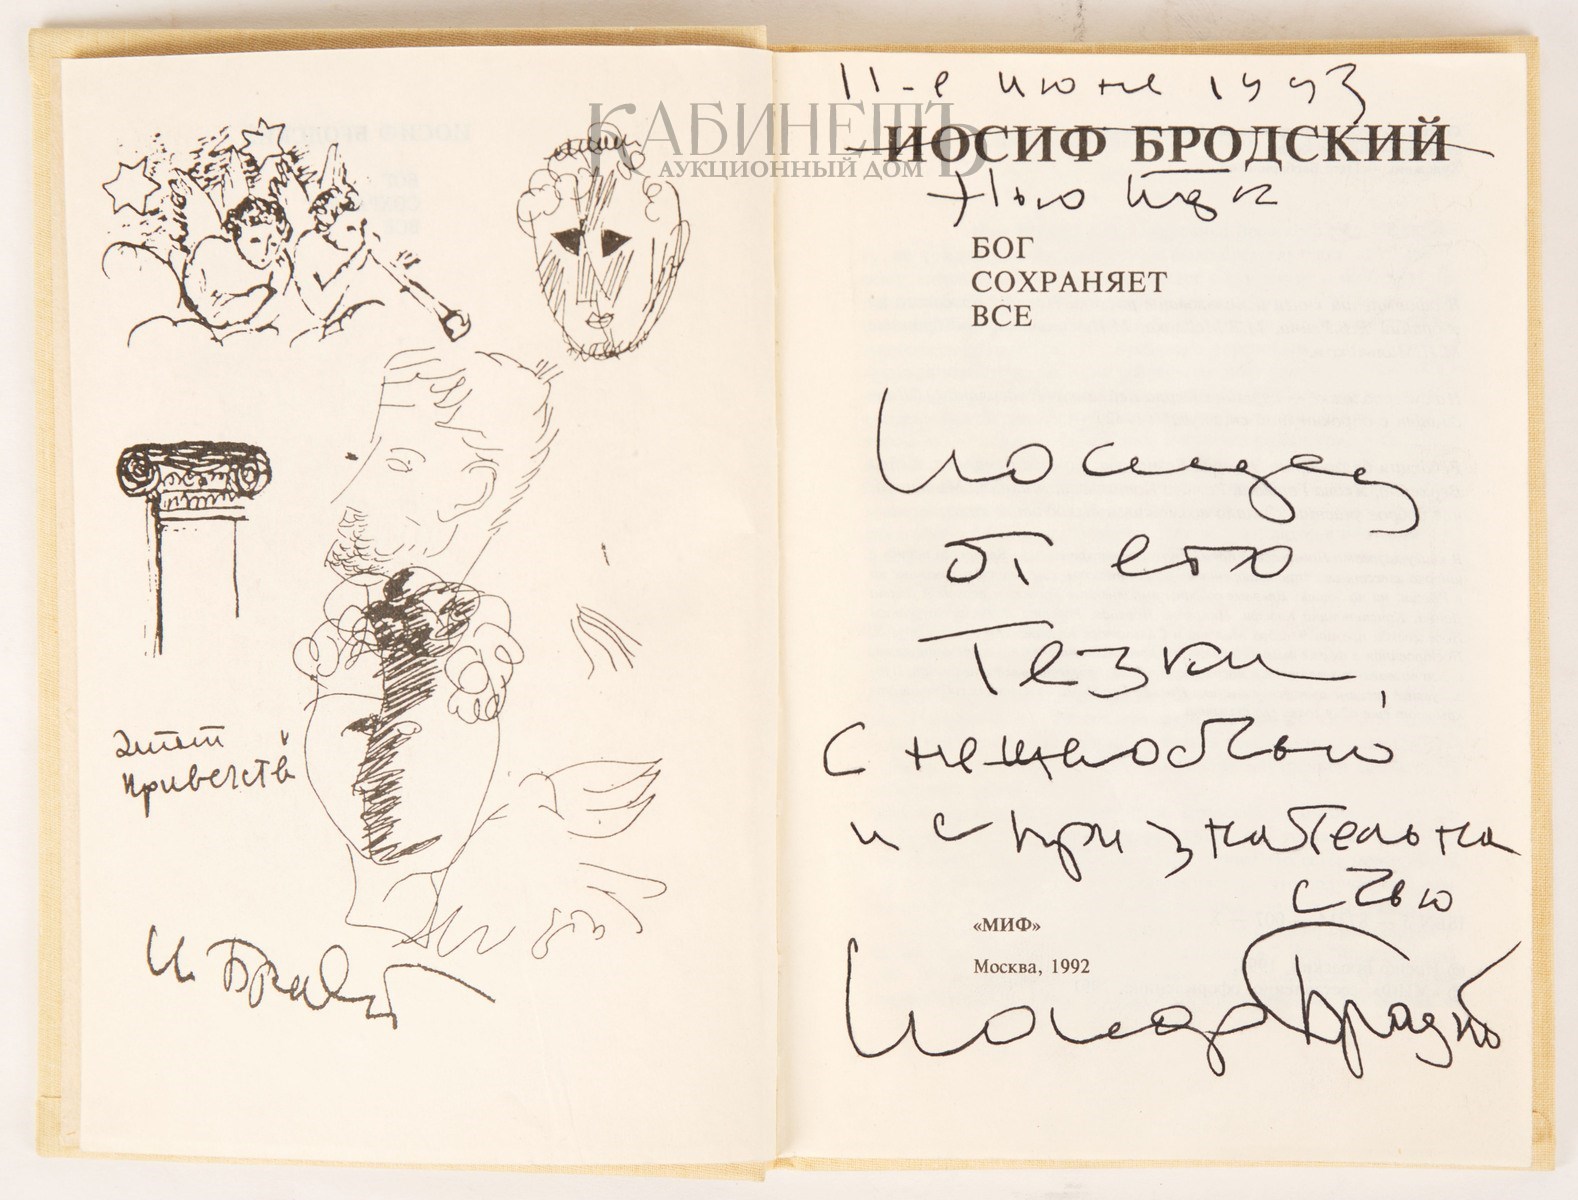 КАБИНЕТЪ
АУКЦИОННЫЙ ДОМ
привечств
И. Бродск
11-е июне 1993
ИОСИФ БРОДСКИЙ
Нью Йорк
БОГ
СОХРАНЯЕТ
ВСЕ
Иосифу
от его
тезки,
с нежностью
и с признательно
стью
«МИФ»
Москва, 1992
Иосиф Бродский